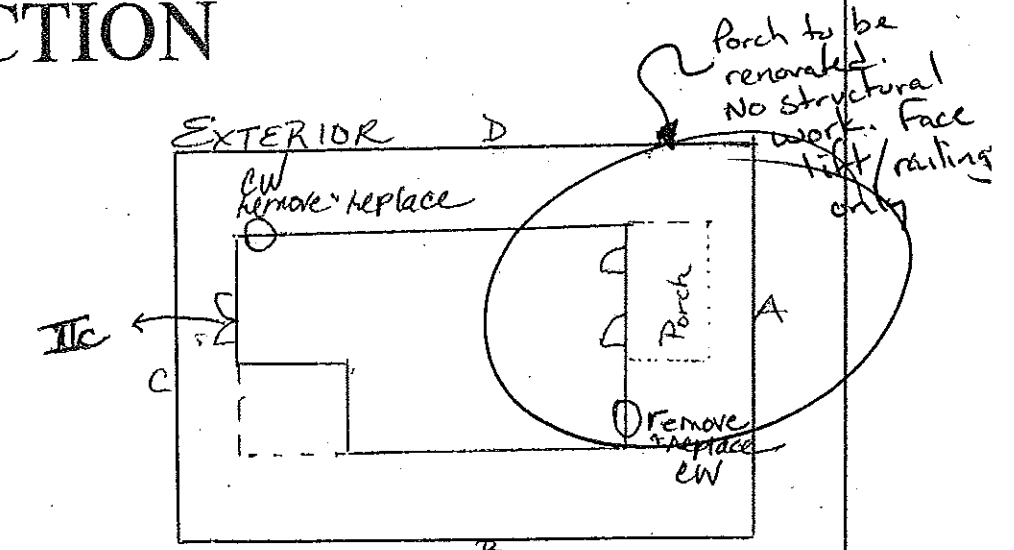 CTION
Porch to be
renovated.
No structural
work. Face
lift/railing
only
EXTERIOR D
CW
remove & replace
Porch
A
IIc
C
remove
& replace
CW
B